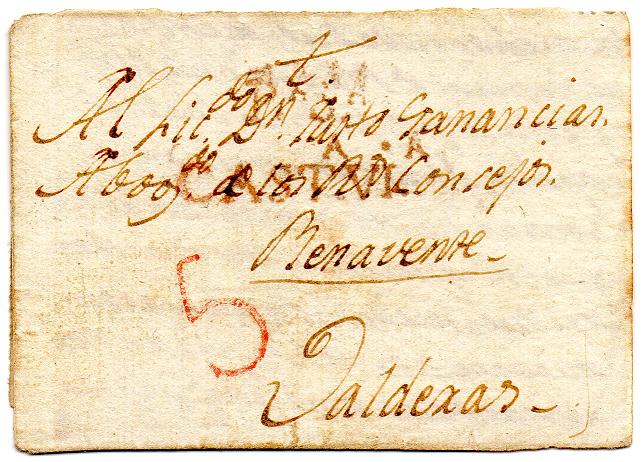 Al Lic.do Dn. Justo Ganancias.
Abog.do de los RR Concejos.
Benavente
5
Valderas